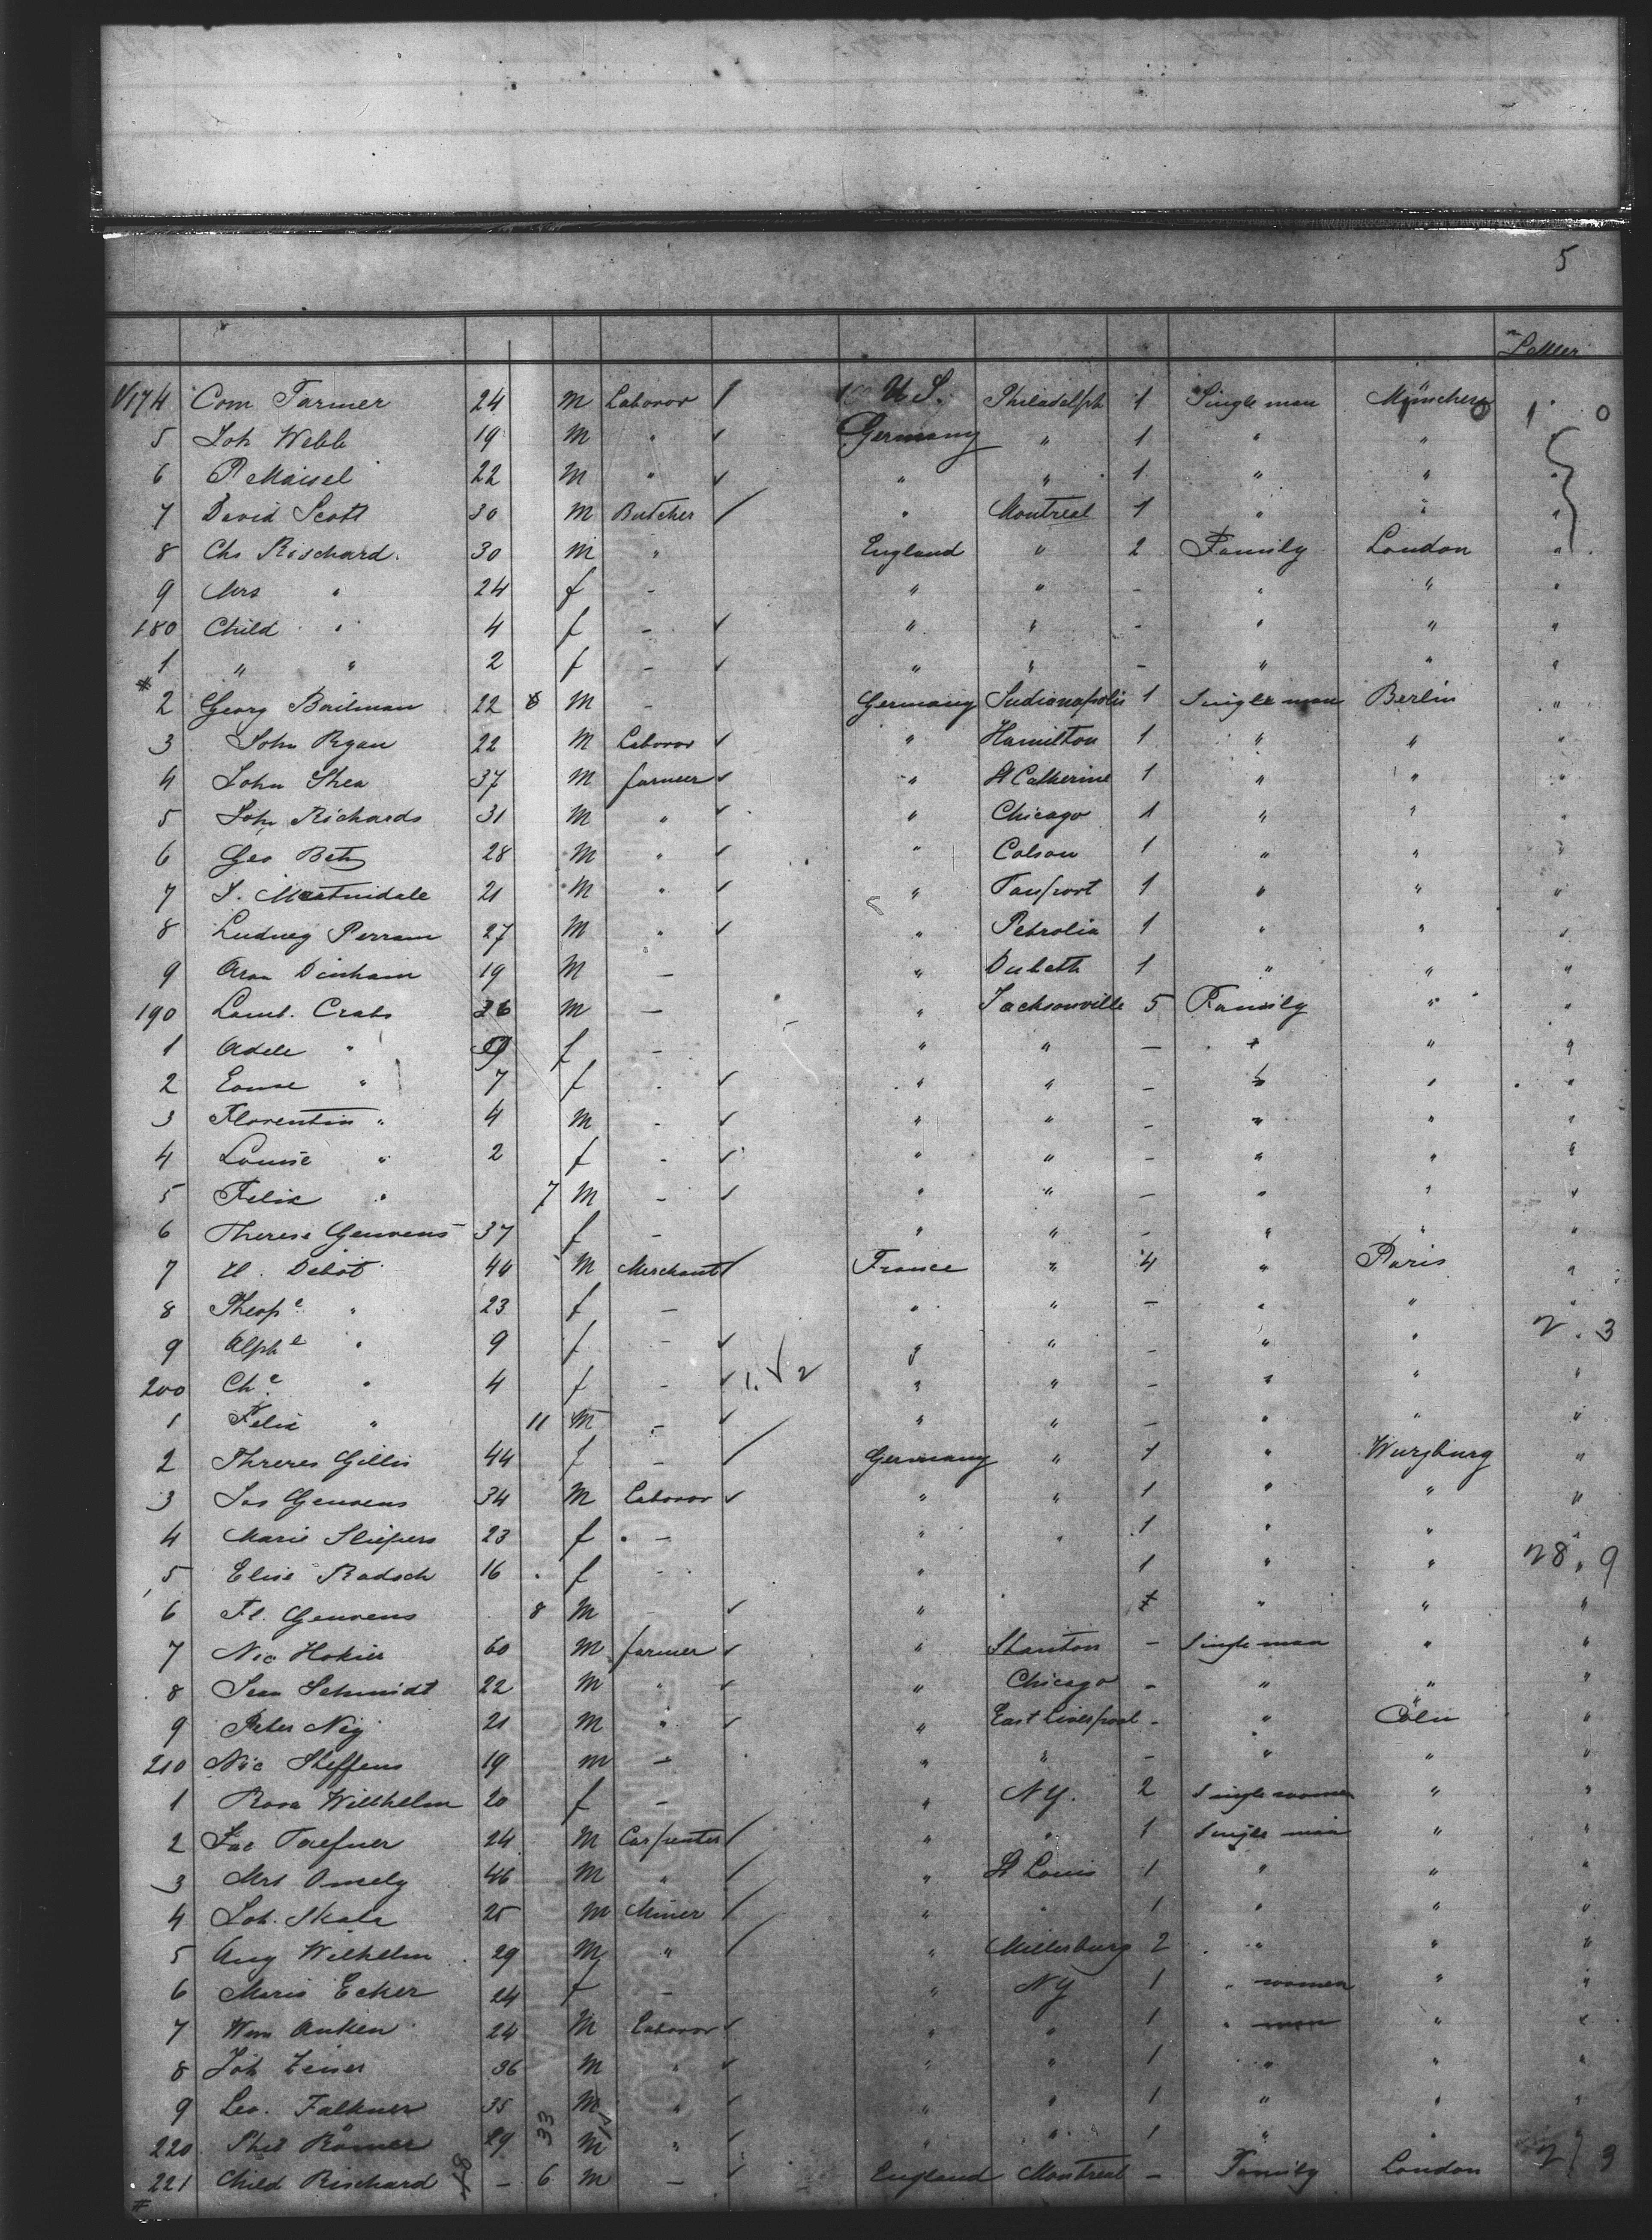 5
174 Com Farmer 24 M Laboror 1 U.S. Philadelph 1 Single man München
5 Joh Webb 19 M " Germany " 1 " "
6 P Maisel 22 M " " " 1 " " "
7 David Scott 30 M Butcher " Montreal 1 " " "
8 Chs Rischard 30 M " England " 2 Family London "
9 Mrs " 24 f - " " - " " "
180 Child " 4 f - " " - " " "
1 " " 2 f - " " - " " "
2 Georg Boilman 22 M - Germany Indianapolis 1 Single man Berlin "
3 John Ryan 22 M Laboror " Hamilton 1 " " "
4 John Shea 37 M farmer " St Catherine 1 " " "
5 Joh Richards 31 M " " Chicago 1 " " "
6 Geo Betz 28 M " " Colson 1 " " "
7 J. Mastnidale 21 M " " Tanport 1 " " "
8 Ludweg Perram 27 M " " Petrolia 1 " " "
9 Aron Dinham 19 M - " Duleth 1 " " "
190 Lamb. Crabs 36 M - " Jacksonville 5 Family " "
1 Adele " f - " " - " " "
2 " 7 f - " " - " " "
3 Florentin " 4 M - " " - " " "
4 Louise " 2 f - " " - " " "
5 Felix " 7 M - " " - " " "
6 Therese Geuvens 37 f - " " - " " "
7 H. Débot 44 M Merchant France " 4 " Paris "
8 Theop e " 23 f - " " - " " "
9 Alph e " 9 f - " " - " " 2. 3
200 Ch e " 4 f - 1. 2 " " - " " "
1 Felix " 11 M - " " - " " "
2 Threres Gillis 44 f - Germany " 1 " Wurzburg "
3 Jos Geuvens 34 M Laboror " " 1 " " "
4 Marie Sliepers 23 f - " " 1 " " "
5 Elise Radsch 16 f - " 1 " " 28. 9
6 Fl. Geuvens 8 M - " " " "
7 Nic Hokier 60 M farmer " Stanton - Single man " "
8 Jean Schmidt 22 M " " Chicago - " " "
9 Peter Ney 21 M " " East Liverpool - " Cöln "
210 Nic Steffens 19 M - " " - " " "
1 Rosa Willhelm 20 f - " NY. 2 Single women " "
2 Jac Taefner 24 M Carpenter " " 1 Single man " "
3 Mrt Omely 46 M " " St Louis 1 " " "
4 Joh. Skala 25 M Miner " " 1 " " "
5 Aug Wilhelm 29 M " " Millersburg 2 " " "
6 Maria Ecker 24 f - " NY 1 " women " "
7 Wm Anken 24 M Laboror " " 1 " man " "
8 Joh Zeiser 36 M " " " 1 " " "
9 Leo. Falkner 35 M " " " 1 " " "
220 Phil Römer 29 33 M " " " 1 " "
221 Child Rischard - 6 M - England Montreal - Family London